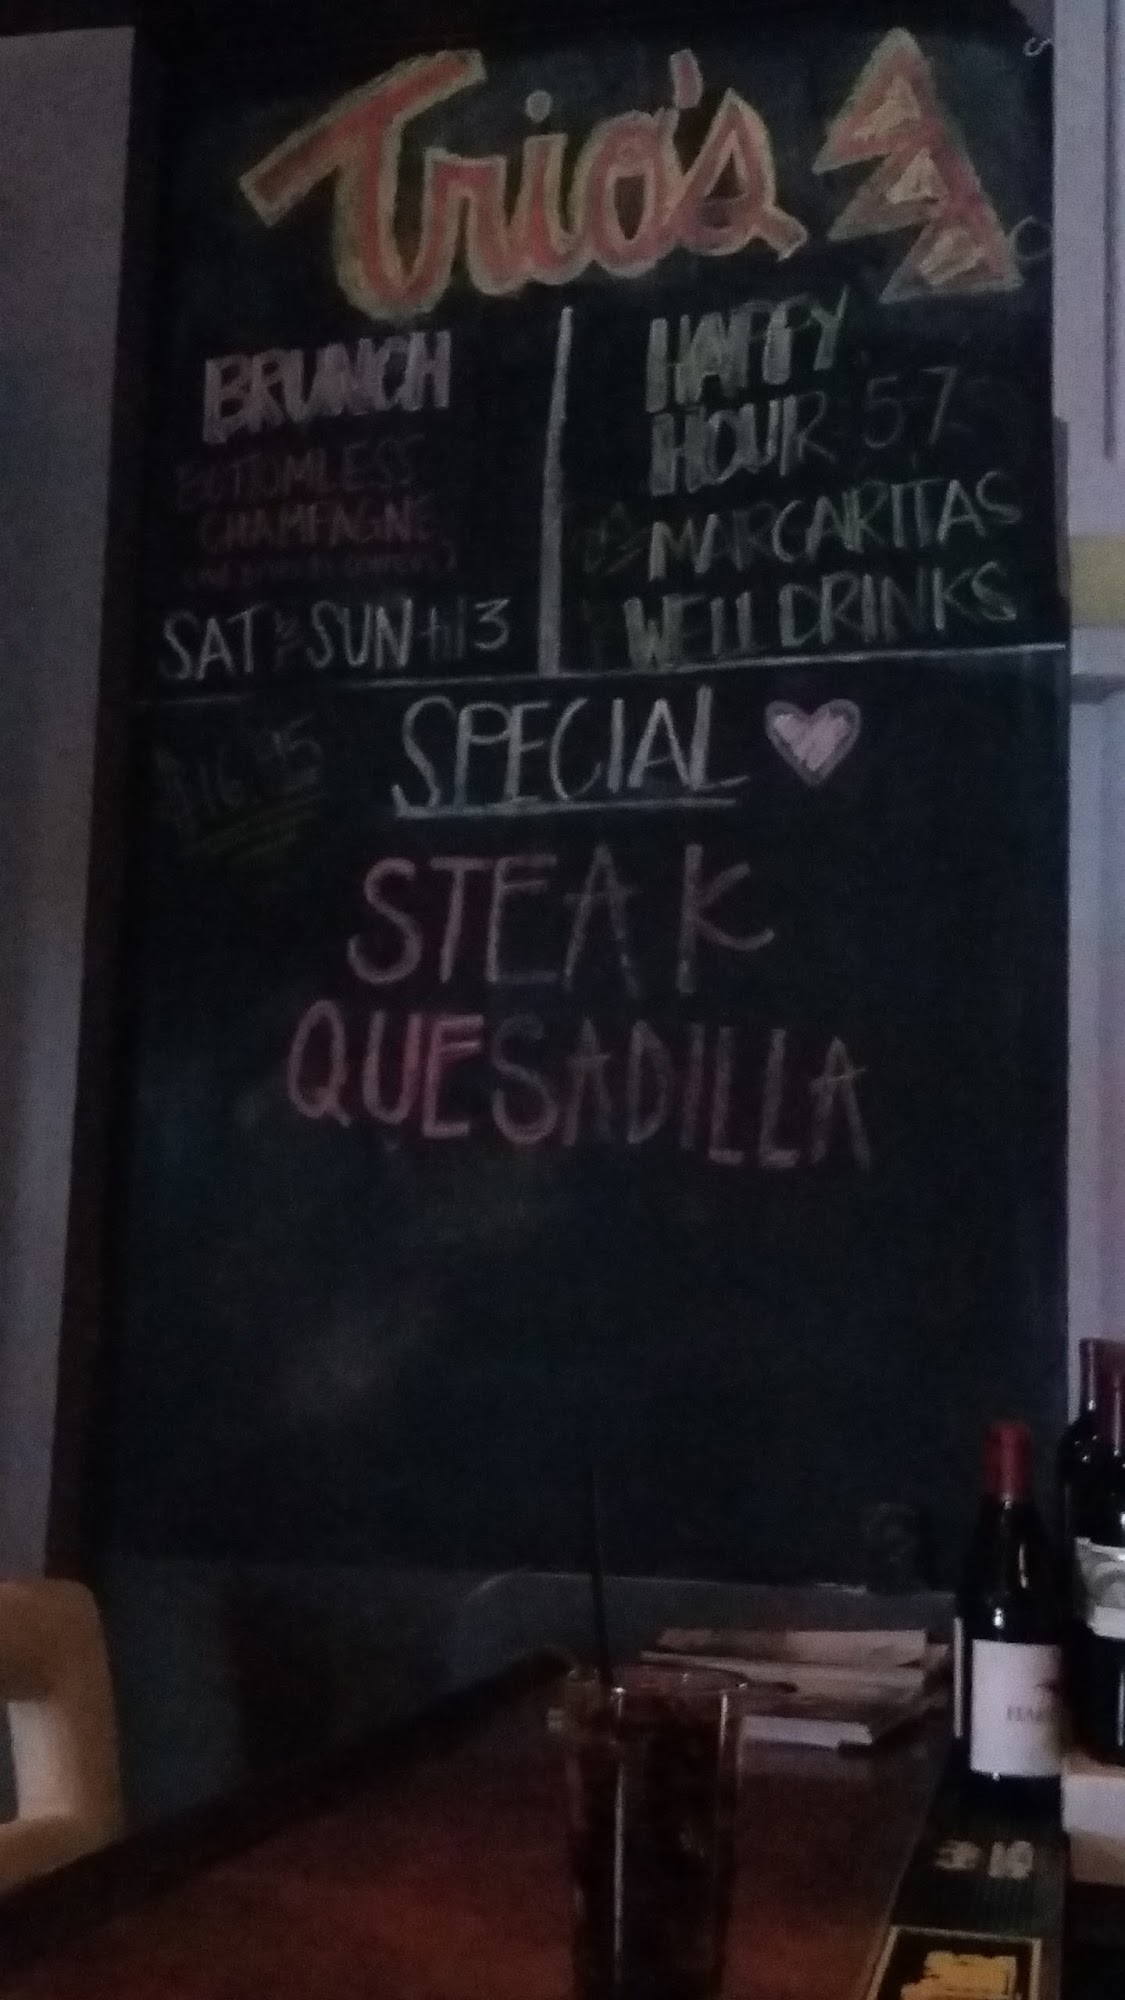 Trio's
BRUNCH
BOTTOMLESS
CHAMPAGNE
SAT & SUN til 3
HAPPY
HOUR 5-7
MARGARITAS
WELL DRINKS
$16.95
SPECIAL
STEAK
QUESADILLA